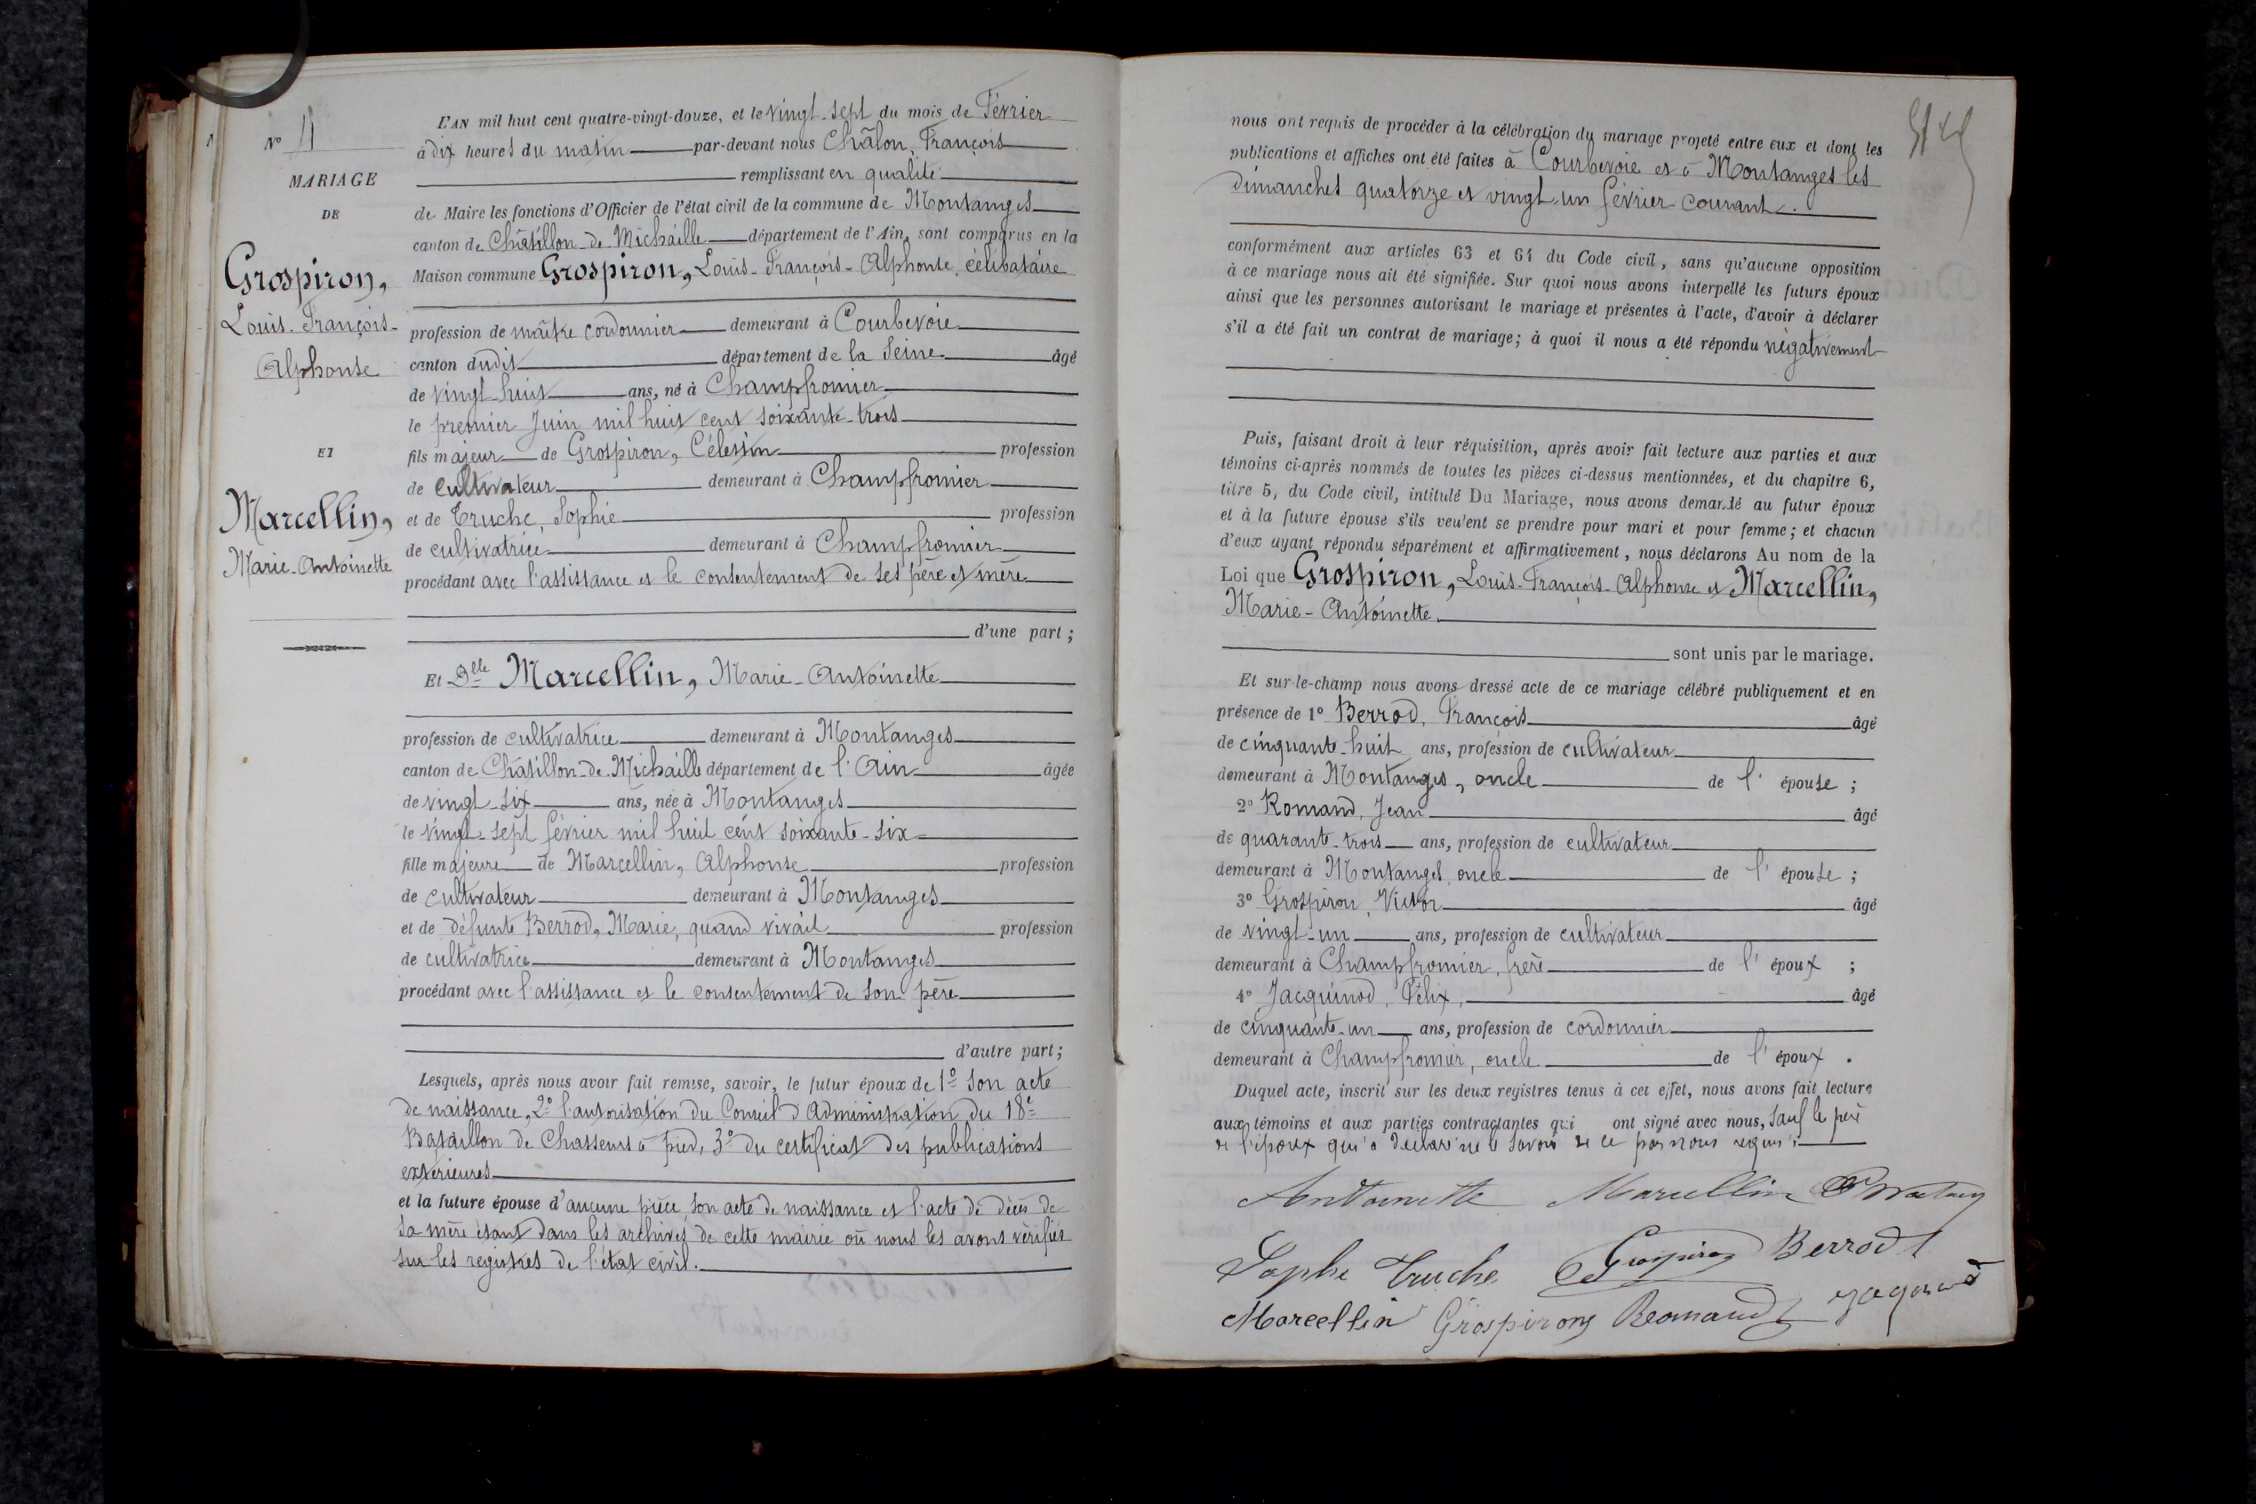 N° 4
MARIAGE
DE
Grospiron,
Louis-François-
Alphonse
ET
Marcellin,
Marie-Antoinette
L'AN mil huit cent quatre-vingt-douze, et le vingt-sept du mois de Février
à dix heures du matin par-devant nous Châlon, François
remplissant en qualité
de Maire les fonctions d'Officier de l'état civil de la commune de Montanges
canton de Châtillon-de-Michaille département de l'Ain, sont comparus en la
Maison commune Grospiron, Louis-François-Alphonse, célibataire
profession de maître cordonnier demeurant à Courbevoie
canton dudit département de la Seine âgé
de vingt-huit ans, né à Champfromier
le premier Juin mil huit cent soixante-trois
fils majeur de Grospiron, Célestin profession
de cultivateur demeurant à Champfromier
et de Truche, Sophie profession
de cultivatrice demeurant à Champfromier
procédant avec l'assistance et le consentement de ses père et mère
d'une part ;
Et Dlle Marcellin, Marie-Antoinette
profession de cultivatrice demeurant à Montanges
canton de Châtillon-de-Michaille département de l'Ain âgée
de vingt-six ans, née à Montanges
le vingt-sept février mil huit cent soixante-six
fille majeure de Marcellin, Alphonse profession
de cultivateur demeurant à Montanges
et de défunte Berrod, Marie, quand vivait profession
de cultivatrice demeurant à Montanges
procédant avec l'assistance et le consentement de son père
d'autre part ;
Lesquels, après nous avoir fait remise, savoir, le futur époux de 1° son acte
de naissance, 2° l'autorisation du Conseil d'Administration du 18e
Bataillon de Chasseurs à pied, 3° du certificat des publications
extérieures
et la future épouse d'aucune pièce son acte de naissance et l'acte de décès de
sa mère étant dans les archives de cette mairie où nous les avons vérifiés
sur les registres de l'état civil.
nous ont requis de procéder à la célébration du mariage projeté entre eux et dont les
publications et affiches ont été faites à Courbevoie et à Montanges les
dimanches quatorze et vingt-un février courant.
conformément aux articles 63 et 64 du Code civil, sans qu'aucune opposition
à ce mariage nous ait été signifiée. Sur quoi nous avons interpellé les futurs époux
ainsi que les personnes autorisant le mariage et présentes à l'acte, d'avoir à déclarer
s'il a été fait un contrat de mariage ; à quoi il nous a été répondu négativement
Puis, faisant droit à leur réquisition, après avoir fait lecture aux parties et aux
témoins ci-après nommés de toutes les pièces ci-dessus mentionnées, et du chapitre 6,
titre 5, du Code civil, intitulé Du Mariage, nous avons demandé au futur époux
et à la future épouse s'ils veulent se prendre pour mari et pour femme ; et chacun
d'eux ayant répondu séparément et affirmativement, nous déclarons Au nom de la
Loi que Grospiron, Louis-François-Alphonse et Marcellin,
Marie-Antoinette
sont unis par le mariage.
Et sur-le-champ nous avons dressé acte de ce mariage célébré publiquement et en
présence de 1° Berrod, François âgé
de cinquante-huit ans, profession de cultivateur
demeurant à Montanges, oncle de l'épouse ;
2° Romand, Jean âgé
de quarante-trois ans, profession de cultivateur
demeurant à Montanges, oncle de l'épouse ;
3° Grospiron, Victor âgé
de vingt-un ans, profession de cultivateur
demeurant à Champfromier, frère de l'époux ;
4° Jacquinod, Félix, âgé
de cinquante-un ans, profession de cordonnier
demeurant à Champfromier, oncle de l'époux.
Duquel acte, inscrit sur les deux registres tenus à cet effet, nous avons fait lecture
aux témoins et aux parties contractantes qui ont signé avec nous, sauf le père
de l'époux qui a déclaré ne le savoir de ce par nous requis.
Antoinette Marcellin
Sophie Truche Grospiron Berrod
Marcellin Grospiron Romand